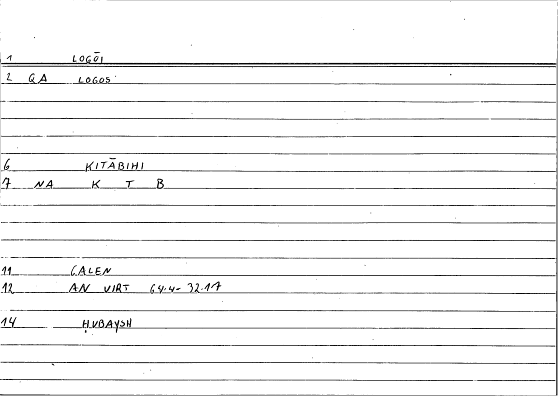 1 LOGŌI
2 QA LOGOS
6 KITĀBIHI
7 NA K T B
11 GALEN
12 AN VIRT 64.4- 32.17
14 ḤUBAYSH